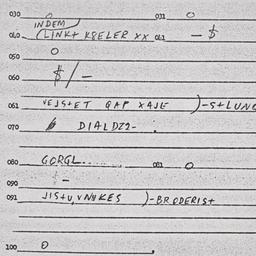 030 0 031 0
INDEM
040 (LINK+ KSELER XX 041 — $
050 0
060 $/-
061 VEJS+ET GAP XAJE )-S+LUNG
070 DIALDZ2-.
080 GORGL...... 081 0
090 -
091 JIS+U,VNVKES )-BRODERIS+
100 0